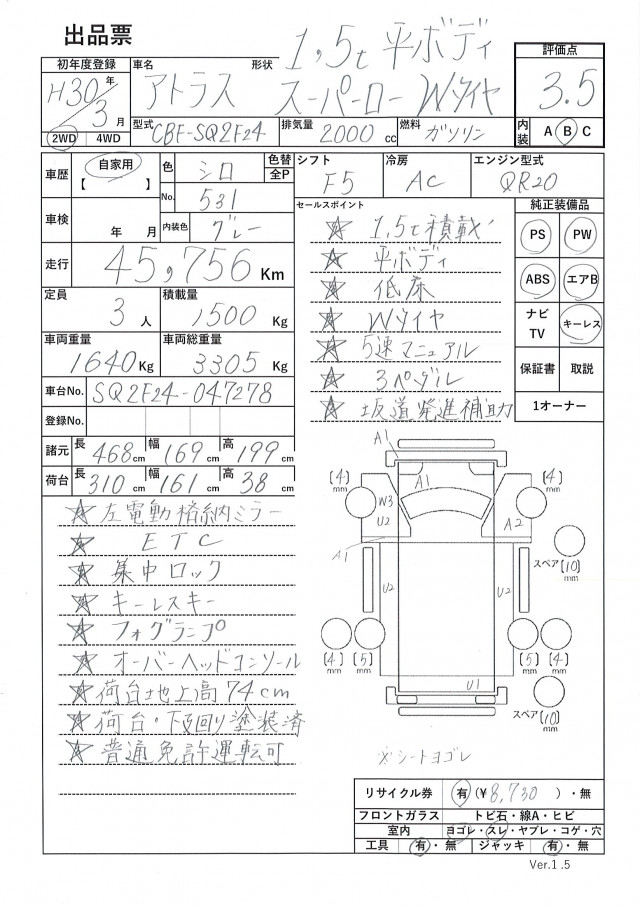 出品票
初年度登録 車名 形状 1,5t 平ボディ 評価点
H30年 3月 アトラス スーパーロー Wタイヤ 3.5
2WD 4WD 型式 CBF-SQ2F24 排気量 2000cc 燃料 ガソリン 内装 A B C
車歴 自家用 【 】 色 シロ 色替 全P シフト F5 冷房 AC エンジン型式 QR20
No. 531
車検 年 月 内装色 グレー
走行 45,756 Km
定員 3人 積載量 1500Kg
車両重量 1640Kg 車両総重量 3305Kg
車台No. SQ2F24-047278
登録No.
諸元 長 468cm 幅 169cm 高 199cm
荷台 長 310cm 幅 161cm 高 38cm
セールスポイント
★ 1,5t積載
★ 平ボディ
★ 低床
★ Wタイヤ
★ 5速マニュアル
★ 3ペダル
★ 坂道発進補助
純正装備品
PS PW
ABS エアB
ナビ TV キーレス
保証書 取説
1オーナー
★ 左電動格納ミラー
★ ETC
★ 集中ロック
★ キーレスキー
★ フォグランプ
★ オーバーヘッドコンソール
★ 荷台地上高74cm
★ 荷台・下回り塗装済
★ 普通免許運転可
A1
[4]mm A1 [4]mm
W3
U2 A2
A1
スペア[10]mm
U2 U2
[4]mm [5]mm [5]mm [4]mm
U1
スペア[10]mm
※シートヨゴレ
リサイクル券 有(¥8,730)・無
フロントガラス トビ石・線A・ヒビ
室内 ヨゴレ・スレ・ヤブレ・コゲ・穴
工具 有・無 ジャッキ 有・無
Ver.1.5